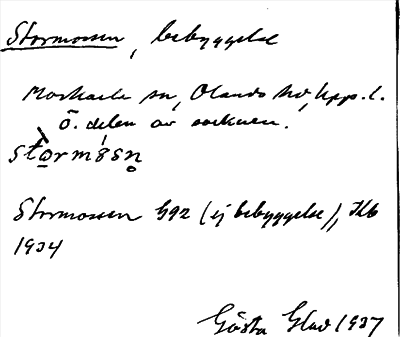 Stormossen, bebyggelse
Morkarla sn, Olands hd, Upps. l.
Ö. delen av socknen.
stormósn̥
Stormossen G92 (ej bebyggelse), Hb
1934
Gösta Glad 1937